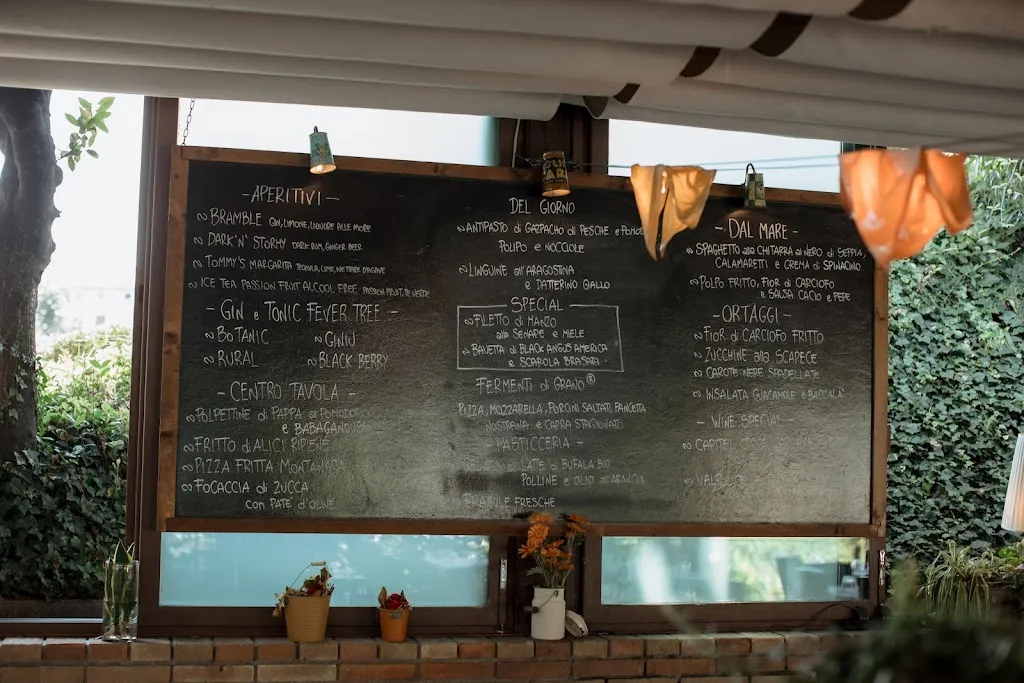 -APERITIVI-
BRAMBLE GIN, LIMONE, LIQUORE ALLE MORE
DARK'N' STORMY DARK RUM, GINGER BEER
TOMMY'S MARGARITA TEQUILA, LIME, NETTARE D'AGAVE
ICE TEA PASSION FRUIT ALCOOL FREE PASSION FRUIT, TE VERDE
-GIN e TONIC FEVER TREE-
BOTANIC
GINIU
RURAL
BLACK BERRY
-CENTRO TAVOLA-
POLPETTINE di PAPPA al POMODORO
e BABAGANOUSH
FRITTO di ALICI RIPIENE
PIZZA FRITTA MONTANARA
FOCACCIA di ZUCCA
con PATE' d'OLIVE
DEL GIORNO
ANTIPASTO di GAZPACHO di PESCHE e
POLIPO e NOCCIOLE
LINGUINE all'ARAGOSTINA
e DATTERINO GIALLO
SPECIAL
FILETTO di MANZO
alla SENAPE e MIELE
BAVETTA di BLACK ANGUS AMERICA
e SCAROLA BRASATA
FERMENTI di GRANO®
PIZZA, MOZZARELLA, PORCINI SALTATI, PANCETTA
NOSTRANA e CAPRA STAGIONATO
-PASTICCERIA-
di LATTE di BUFALA BIO
POLLINE e OLIO all'ARANCIA
FRAGOLE FRESCHE
-DAL MARE-
SPAGHETTO alla CHITARRA al NERO di SEPPIA,
CALAMARETTI e CREMA di SPINACINO
POLPO FRITTO, FIOR di CARCIOFO
e SALSA CACIO e PEPE
-ORTAGGI-
FIOR di CARCIOFO FRITTO
ZUCCHINE alla SCAPECE
CAROTE NERE SPADELLATE
INSALATA GUACAMOLE e BACCALA'
-WINE SPECIAL